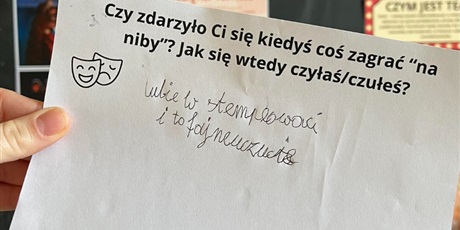 CZYM JEST TEA
Czy zdarzyło Ci się kiedyś coś zagrać "na
niby"? Jak się wtedy czyłaś/czułeś?
lubie w stempowaci
i to fajne uzucie